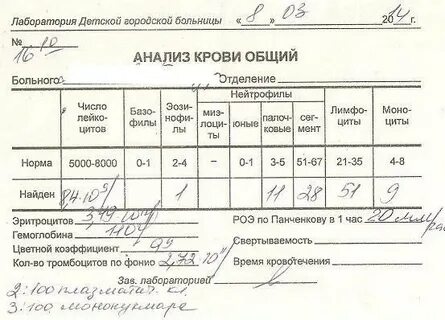 Лаборатория Детской городской больницы « 8 » 03 2014 г.
№ 10
16
АНАЛИЗ КРОВИ ОБЩИЙ
Больного Отделение
Число лейкоцитов Базофилы Эозинофилы Нейтрофилы Лимфоциты Моноциты
миэлоциты юные палочковые сегмент
Норма 5000-8000 0-1 2-4 0-1 3-5 51-67 21-35 4-8
Найден 84·10⁹/ 1 11 28 51 9
Эритроцитов РОЭ по Панченкову в 1 час 20 мм/час
Гемоглобина 110 Свертываемость
Цветной коэффициент 0,9
Кол-во тромбоцитов по фонио 2,72·10 Время кровотечения
Зав. лабораторией
2:100 плазматич. кл.
3:100 мононуклара